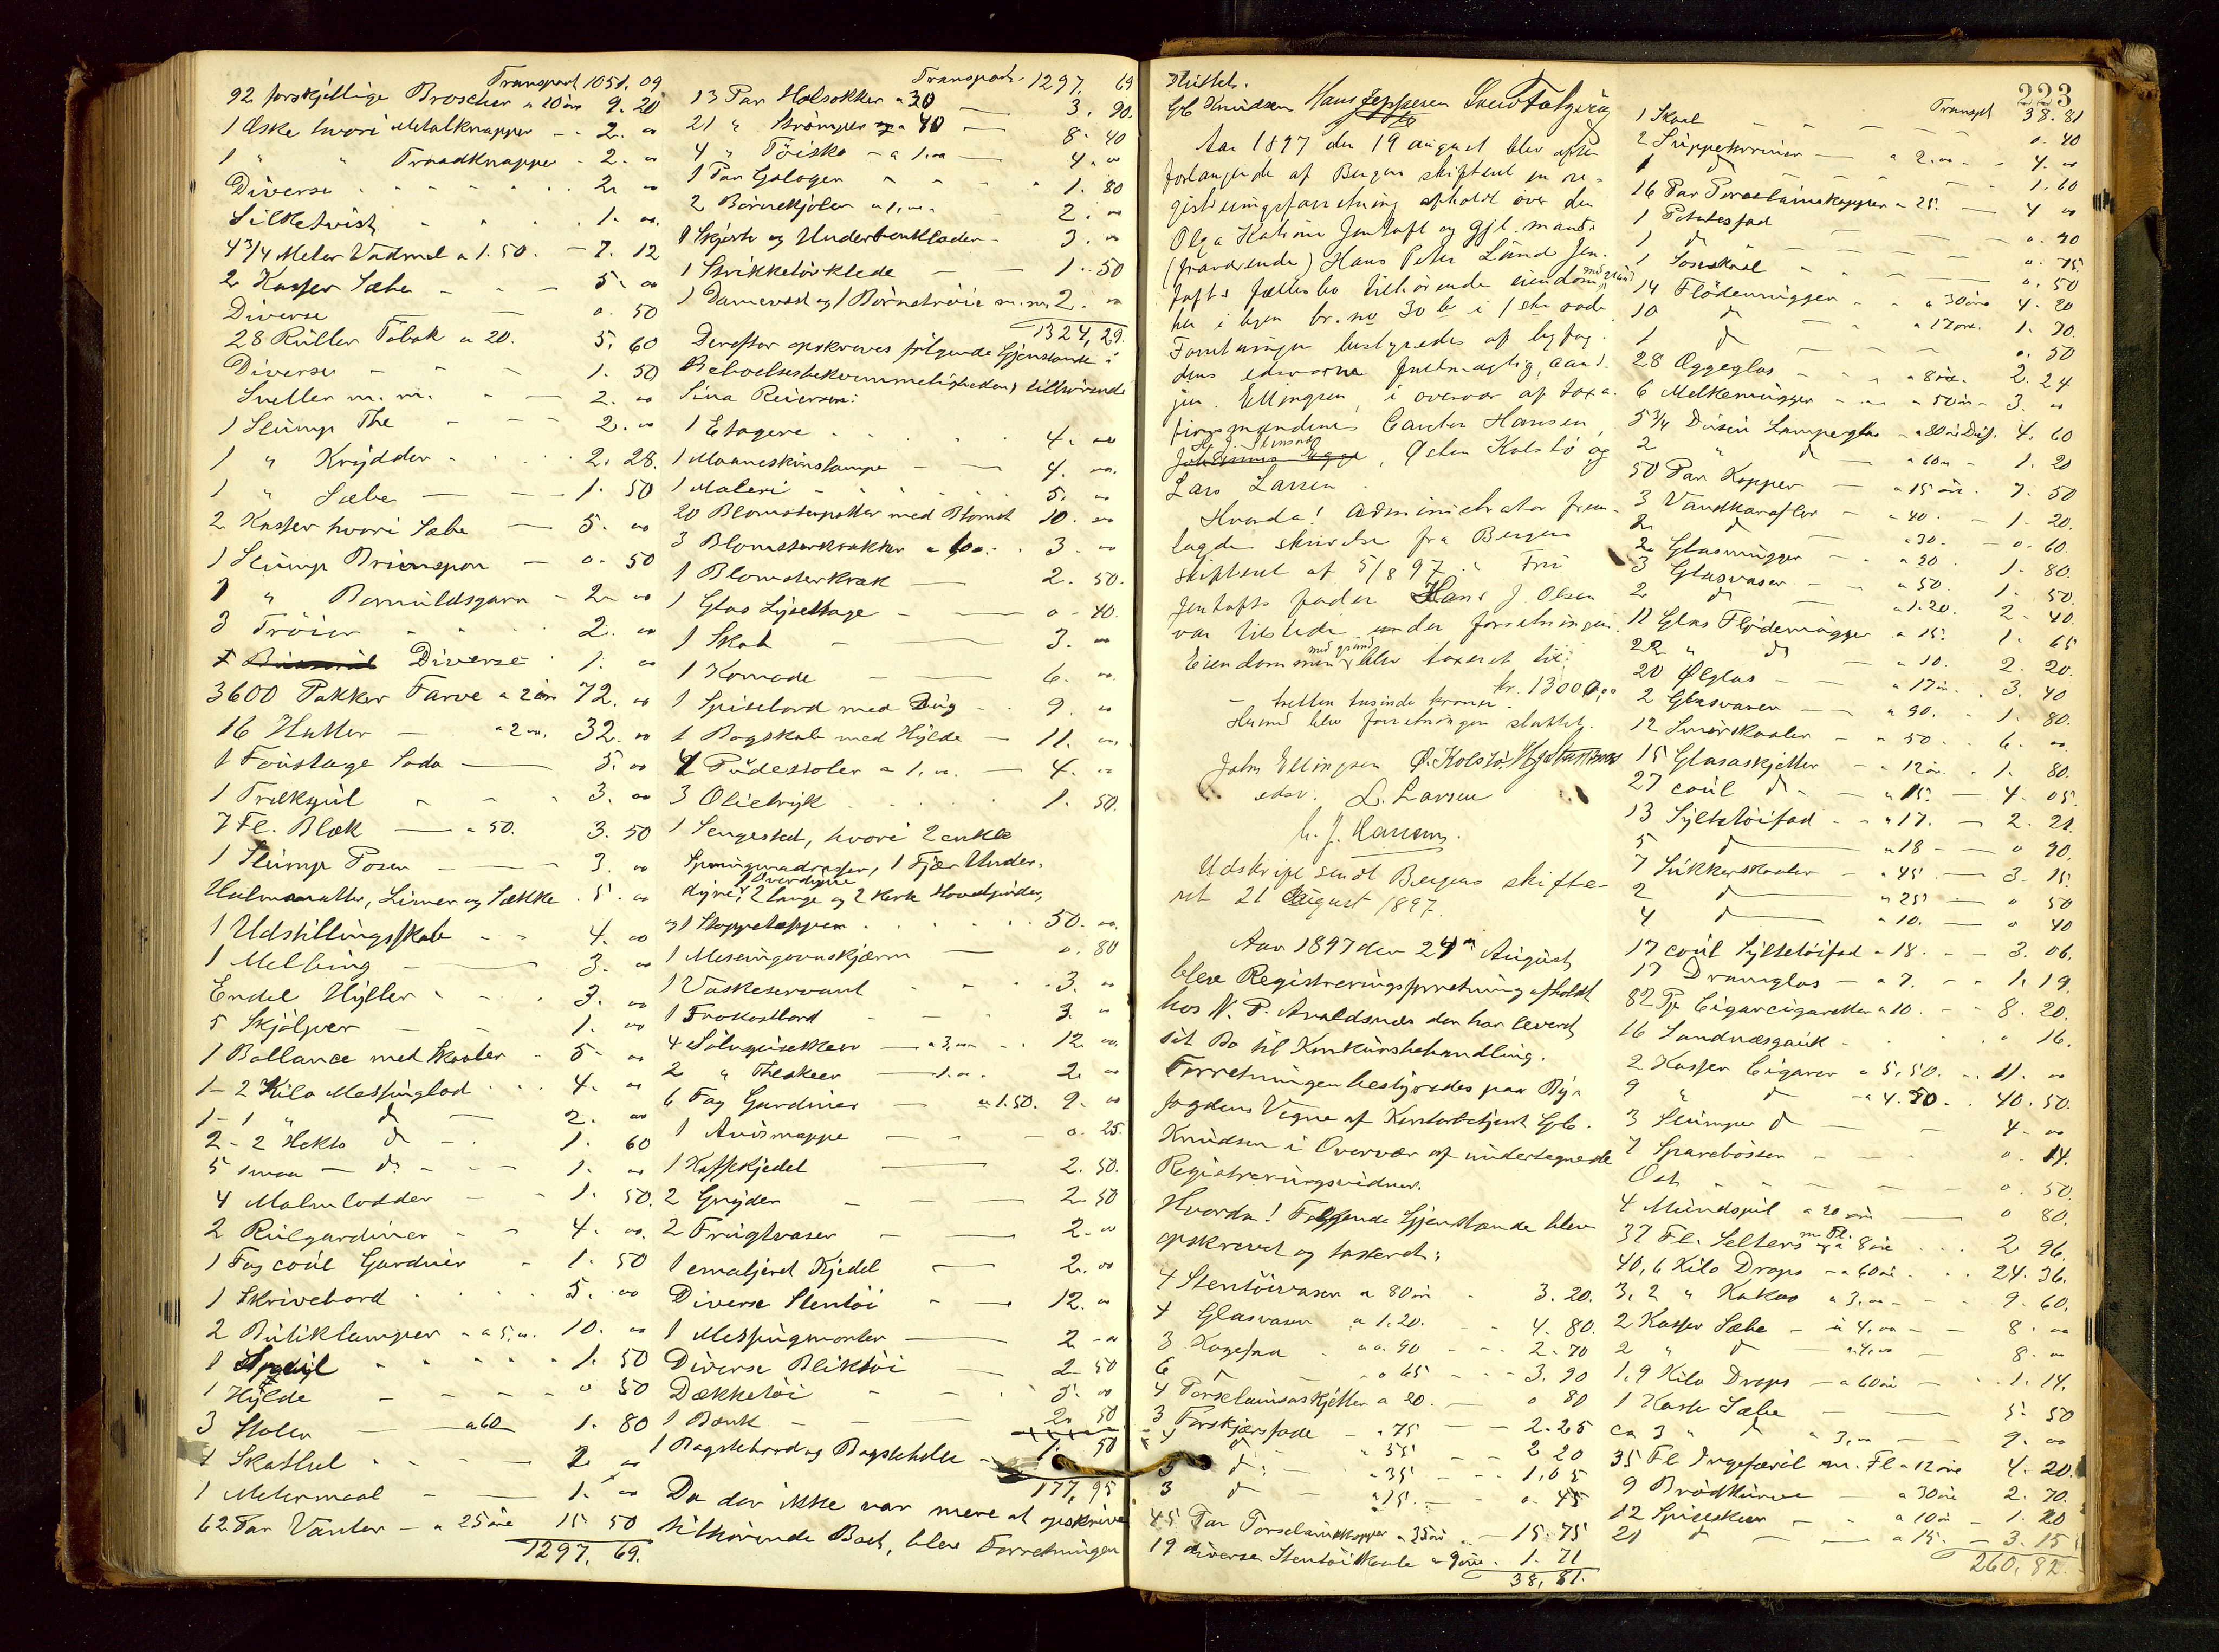 Transport 1051. 09
92 forskjellige Broscher a 10 øre 9. 20
1 Æske hvori Metalknapper - - 2. 00
1 " " Traadknapper - 2. 00
Diverse 2. 00
Silketvist 1. 00
4 3/4 Meter Vadmel a 1.50. - 7. 12
2 Kasser Sæbe - - - 5. 00
Diverse 0. 50
28 Ruller Tobak a 20. 5. 60
Diverse - - - 1. 50
Sneller m. m. - - 2. 00
1 Slump The - - 2. 00
1 " Krydder 2. 28.
1 " Sæbe - - 1. 50
2 Kasser hvori Sæbe - 5. 00
1 Slump - 0. 50
1 " Bomuldsgarn - 2. 00
3 Trøier 2. 00
Diverse 1. 00
3600 Pakker Farve a 2 øre 72. 00
16 Hatter - a 2 00. 32. 00
1 Foustage Soda - 5. 00
1 Trækspil 3. 00
7 Fl. Blæk - a 50. 3. 50
1 Slump Poser - 3. 00
Halmmatter, Limer og Sække . 5. 00
1 Udstillingsskab - - 4. 00
1 Melbing - 3. 00
Endel Hylder 3. 00
5 Skjølper - - 1. 00
1 Ballance med Skaaler - 5. 00
1 - 2 Kilo Messinglod 4. 00
1 - 1 " d° - 2. 00
2 - 2 Hekto d° - 1. 60
5 smaa - d° - - 1. 00
4 Malmlodder - - 1. 50.
2 Rulgardiner - - 4. 00.
1 Fag coul Gardiner - 1. 50
1 Skrivebord 5. 00
2 Butiklamper - a 5,00. 10. 00
1 1. 50
1 Hylde - - - 0 50
3 Stole - a 60 1. 80
1 Skattul 2 00
1 Metermaal - - 1. 00
62 Par Vanter - a 25 øre 15 50
1297. 69.
Transport 1297. 69
13 Par Halsokker a 30 - 3. 90.
21 " Strømper a 40 - 8. 40
4 " Tøisko - a 1.00 - 4. 00
1 Par Galoger 1. 80
2 Børnekjoler a 1,00. 2. 00
1 Skjørt og Underbenklæder - 3. 00
1 Strikketørklede - - 1. 50
1 Damevest og 1 Børnetrøie m.m. 2. 00
1324, 29.
Derefter opskreves følgende Gjenstande i
Beboelsesbekvemmeligheden, tilhørende
Sina Reiersen:
1 Etagere 4. 00
1 Maaneskinslampe - - 4. 00.
1 Maleri - 5. 00
20 Blomsterpotter med Blomst 10. 00
3 Blomsterkrakker a 100. 3. 00
1 Blomsterkrak - 2. 50.
1 Glas Lysestage - - 0 - 40.
1 Skab - - 3. 00
1 Komode - 6. 00.
1 Spisebord med Dug - 9. 00
1 Bogskab med Hylde - 11. 00.
4 Pudestoler a 1,00. - 4. 00
3 Olietryk 1. 50.
1 Sengested, hvori 2 enkle
Springmadrasser, 1 Fjær Under-
1 Overdyne
dyne, 2 lange og 2 korte Hovedpuder,
og 1 Stoppetæppe 50. 00.
1 Messingovnskjærm - 0. 80
1 Vaskeservant 3. 00
1 Frokostbord - - 3. 00
4 Sølvspiseskeer - a 3,00 12. 00.
2 " Theskeer - 1.00. 2. 00
6 Fag Gardiner - a 1.50. 9. 00
1 Avismappe - - 0. 25.
1 Kaffekjedel - 2. 50.
2 Gryder - - 2. 50
2 Frugtvaser - - 2. 00
1 emaljeret Kjedel - 2. 00
Diverse Stentøi - - 12. 00
1 Messingmorter - 2 - 00
Diverse Bliktøi - 2 50
Dækketøi - - 5. 00
1 Bænk - - - 2. 50
1 Bagstebord og Bagstehelle - 1. 50
177, 95
Da der ikke var mere at opskrive
tilhørende Boet, blev Forretningen
sluttet.
Gb Knudsen Hans Jeppesen Sven Tolgerøy
Aar 1897 den 19 august blev efter
forlangende af Bergens skifteret en re-
gistreringsforretning afholdt over den
Olga Katrine Jentoft og gjl. mands
(fraværende) Hans Peter Lund Jen-
med grund
tofts fællesbo tilhørende eiendom
her i byen br. no 30 b i 1ste rode.
Forretningen bestyredes af byfog-
dens edsvorne fuldmægtig, cand.
jur. Ellingsen, i overvær af taxa-
tionsmændene Carsten Hansen,
Østen Kolstø og
Lars Larsen.
Hvorda! Administrator frem-
lagde skrivelse fra Bergens
skifteret af 5/8 97. Fru
Jentofts fader Hans J Olsen
var tilstede under forretningen.
med grund
Eiendommen blev taxeret til:
kr. 13000,00
- tretten tusinde kroner.
Hermed blev forretningen sluttet.
John Ellingsen Ø. Kolstø
edsv. L. Larsen
C. J. Hansen.
Udskrift sendt Bergens skifte-
ret 21 August 1897.
Aar 1897 den 24de August
blev Registreringsforretning afholdt
hos N. P. Avaldsnes der har leveret
sit Bo til Konkursbehandling.
Forretningen bestyredes paa By-
fogdens Vegne af Kontorbetjent Gb.
Knudsen i Overvær af undertegnede
Registreringsvidner.
Hvorda! Følgende Gjenstande blev
opskrevet og taxeret:
4 Stentøivaser a 80 øre - 3. 20.
4 Glasvaser a 1.20. - - 4. 80.
3 Kagefad - a 0. 90 - - 2. 70
6 d° - a 65 - - 3. 90
4 Porselainsaskjetter a 20. - 0 80
3 Forskjærsfade - a 75 - - 2. 25
4 d° a 55 2 20
3 d° - a 35 - - 1,05
3 d° - a 15. - 0. 45
45 Par Porselainskopper a 35 øre - 15. 75
19 diverse Stentøiskaale a 9 øre. 1. 71
38, 81.
223
Transpt 38. 81
1 Skaal - - - 0. 40
2 Suppeterriner - a 2.00 - 4. 00
1 d° - - 1. 60
16 Par Porselainskopper a 25. - 4 00
1 Potatesfad - - 0. 90
1 d° - - 0. 75.
1 Sauseskaal - 0. 50
14 Flødemugger - - a 30 øre 4. 20
10 d° - a 17 øre. 1. 70.
1 d° - - 0. 50
28 Æggeglas - - a 8 øre. 2. 24
6 Melkemugger - - a 50 øre - 3. 00
5 3/4 Dusin Lampeglas - a 80 øre Dus. 4. 60
2 " d° - a 60 øre - 1. 20
50 Par Kopper - a 15 øre. 7. 50
3 Vandkarafler - a 40. - 1. 20.
2 d° - a 30. - 0. 60.
2 Glasmugger - a 90. 1. 80.
3 Glasvaser - a 50. 1. 50.
2 d° - a 1.20. 2. 40.
11 Glas Flødemugger a 15. 1. 65
22 " d° - a 10. 2. 20.
20 Ølglas - - a 17 øre. 3. 40
2 Glasvaser - a 90. - 1. 80.
12 Smørskaaler - a 50. - 6. 00.
15 Glasaskjetter - a 12 øre. - 1. 80.
27 coul d° - a 15. - 4. 05.
13 Syltetøifad - - a 17. - 2. 21.
5 d° - a 18 - - 0 90.
7 Sukkerskaaler - a 45 - 3. 15.
2 d° - a 25 - 0 50
4 d° - a 10. - 0 40
17 coul Syltetøifad - a 18. - 3. 06.
17 Dramglas - a 7. - 1. 19.
82 Pk Cigarcigaretter a 10 - - 8. 20.
16 - 0 16.
2 Kasser Cigarer a 5,50. - 11. 00
9 " d° - a 4.50. . 40. 50.
3 Slumper d° - - 4. 00
7 Sparebøsser - - 0. 14.
Ost - - - 0. 50.
4 Mundspil a 20 øre - 0 80.
m. Fl.
37 Fl. Selters a 8 øre 2 96.
40,6 Kilo Drops - a 60 øre 24. 36.
3,2 " Kakao a 3,00 - - 9. 60.
2 Kasser Sæbe - a 4,00 - - 8. 00
2 " d° - a 4,00 - 8. 00
1,9 Kilo Drops - a 60 øre - 1. 14.
1 Kasse Sæbe - 5. 50
ca 3 " d° a 3,00 - 9. 00
35 Fl Ingeførøl m. Fl a 12 øre 4. 20.
9 Brødkurve - a 30 øre 2. 70.
12 Spiseskeer - a 10 øre - 1. 20
21 d° - a 15. - 3. 15
260, 82.